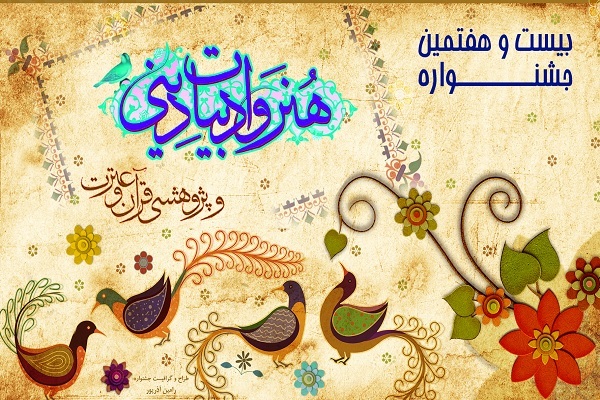 بیست و هفتمین
جشنـــــــواره
هنر و ادبیات دینی
و پژوهشی قرآن و عترت
طراح و گرافیست جشنواره
رامین آذرپور